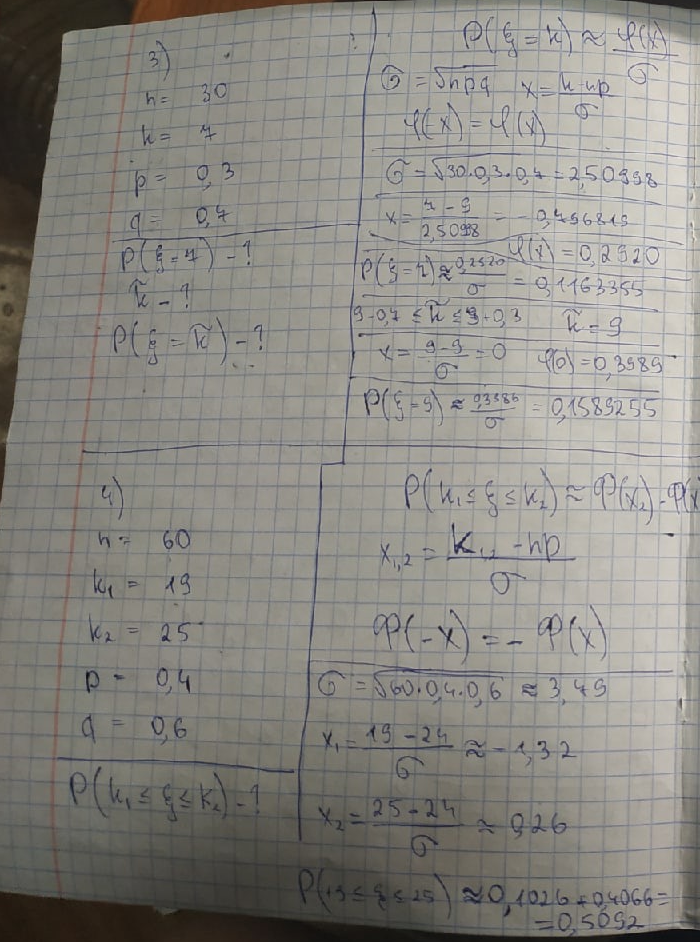 3)
n= 30
k= 7
p= 0,3
q= 0,7
P(ξ=7)-?
k̄-?
P(ξ=k̄)-?
P(ξ=k)≈φ(x)/σ
σ=√npq x=k-np/σ
φ(-x)=φ(x)
σ=√30·0,3·0,7=2,50998
x=7-9/2,5098=-0,796819
φ(x)=0,2920
P(ξ=7)≈0,2920/σ=0,1163355
9-0,7≤k̄≤9+0,3 k̄=9
x=9-9/σ=0 φ(0)=0,3989
P(ξ=9)≈0,3989/σ=0,1589255
4)
n= 60
k₁= 19
k₂= 25
p= 0,4
q= 0,6
P(k₁≤ξ≤k₂)-?
P(k₁≤ξ≤k₂)≈Ф(x₂)-Ф(x
x₁,₂=k₁,₂-np/σ
Ф(-x)=-Ф(x)
σ=√60·0,4·0,6≈3,79
x₁=19-24/σ≈-1,32
x₂=25-24/σ≈0,26
P(19≤ξ≤25)≈0,1026+0,4066=
=0,5092